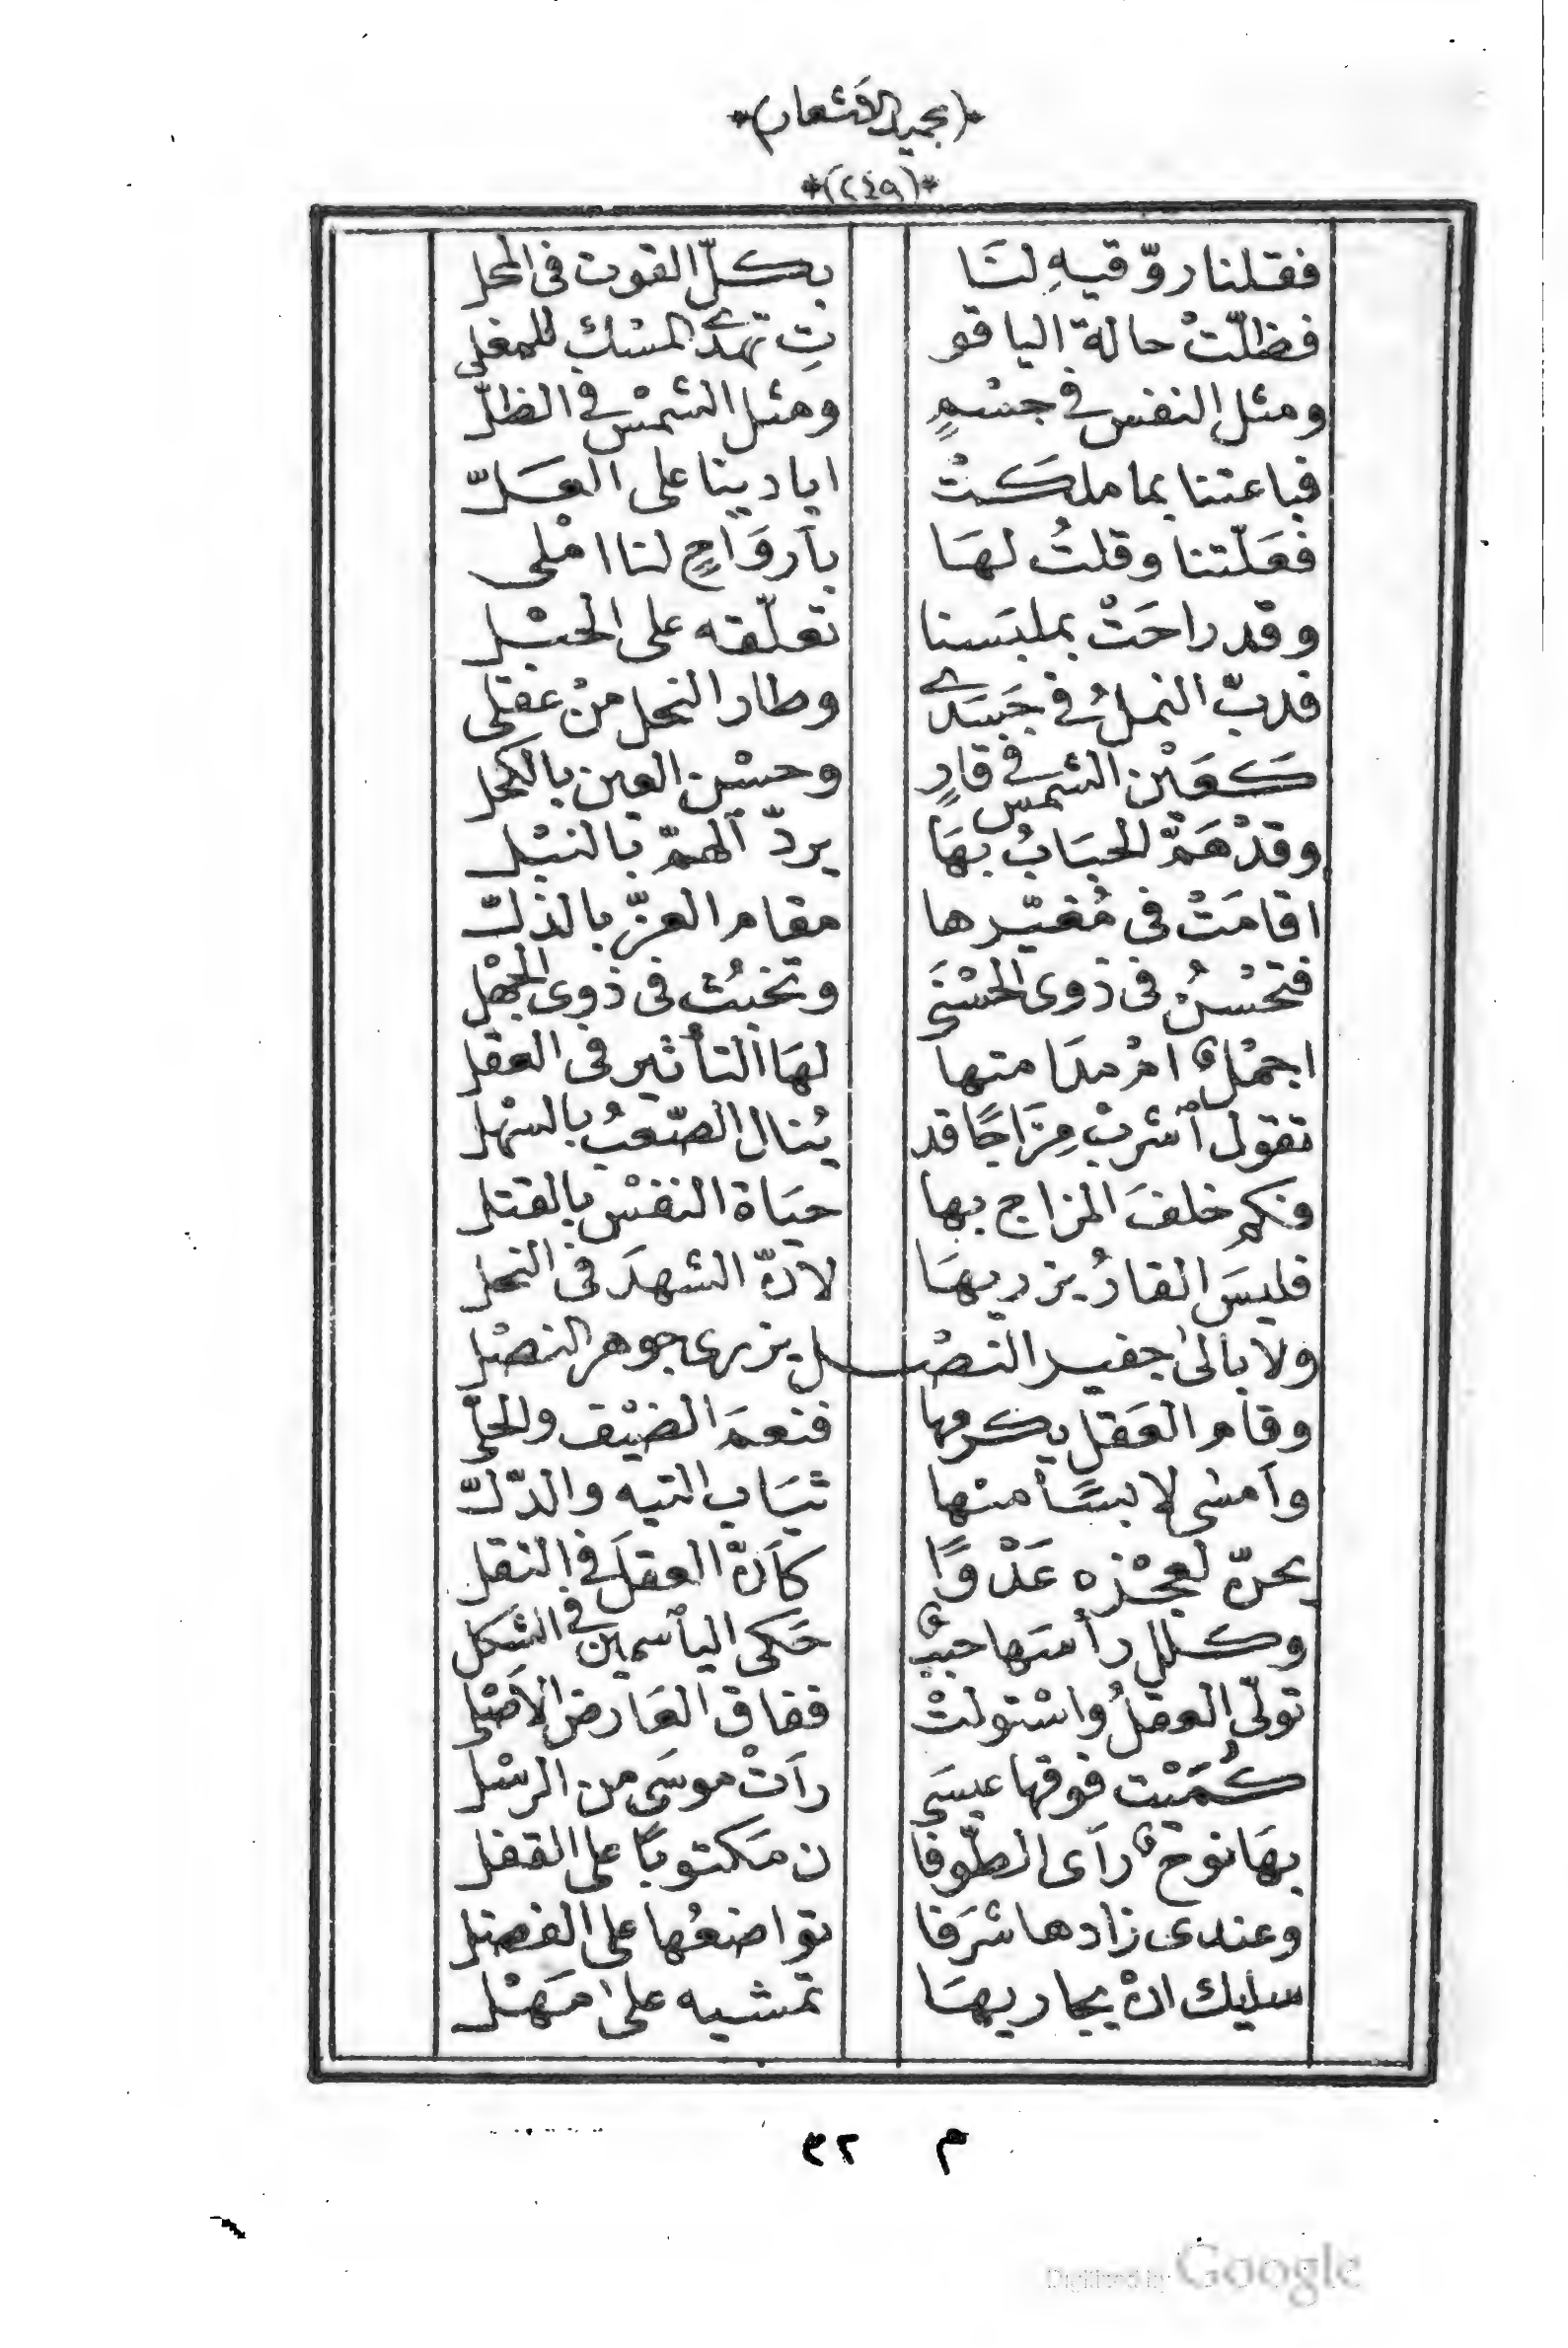 *(بحميد الاشعار)*
*(٢٤٩)*
فقلنا روّقيهِ لنَا بكلّ القوت فى المحل
فظلّتْ حالة الياقو تِ تهدى المسك للمغلى
ومثل النفس فى جسْمٍ ومثل الشمْس فى الظلّ
فباعتنا بما ملكَتْ ايادينا على العَلّ
فعَلّتنا وقلتُ لهَا بأروَاحٍ لنا املى
وقد راحَتْ بملبَسنا تعلّقه على الحبْل
فدبّ النملُ فى جَسَدى وطار النحل منْ عقلى
كعَيْن الشمس فى قارٍ وحسْن العين بالكحل
وقدْ هَمَّ الحبَابُ بهَا يردّ الهمّ بالنبْل
اقامَتْ فى مُغيّرها مقام العزّ بالذلّ
فتحْسُنُ فى ذوى الحسْنَى وتخبُث فى ذوى الجهْل
اجهْلٌ امْ مدَامتها لهَا التأثير فى العقل
تقول أشربْ مِزَاجًا قد يُنال الصّعبُ بالسهْل
فكم خلفَ المزاج بها حيَاة النفسْ بالقتل
فليسَ القارُ يزريهَا لانّ الشهدَ فى النحل
ولا بالى جفير النصْـ ـل يزرى جوهر النصْل
وقام العَقل يكرمها فنعمَ الضيْف والخلّ
وأمشى لابسًا منها ثيَاب التيه والدّلّ
بحرّ لعجْزه عَدْوًا كأنّ العقلَ فى النقل
وكلل رأسَها حببٌ حَكى اليأسمين فى الشكل
تولّى العقلُ واسْتولتْ ففاق العَارض الأصْلى
كُمَيْت فوقها عيسَى رأتْ موسَى من الرسْل
بهَا نوحٌ رأى الطّوفا ن مَكتوبًا على القفل
وعندى زادها شرَفا تواضعُها على الفضل
سليك انْ يجاريهَا تمشيه على مَهْل
م ٣٢
Digitized by Google